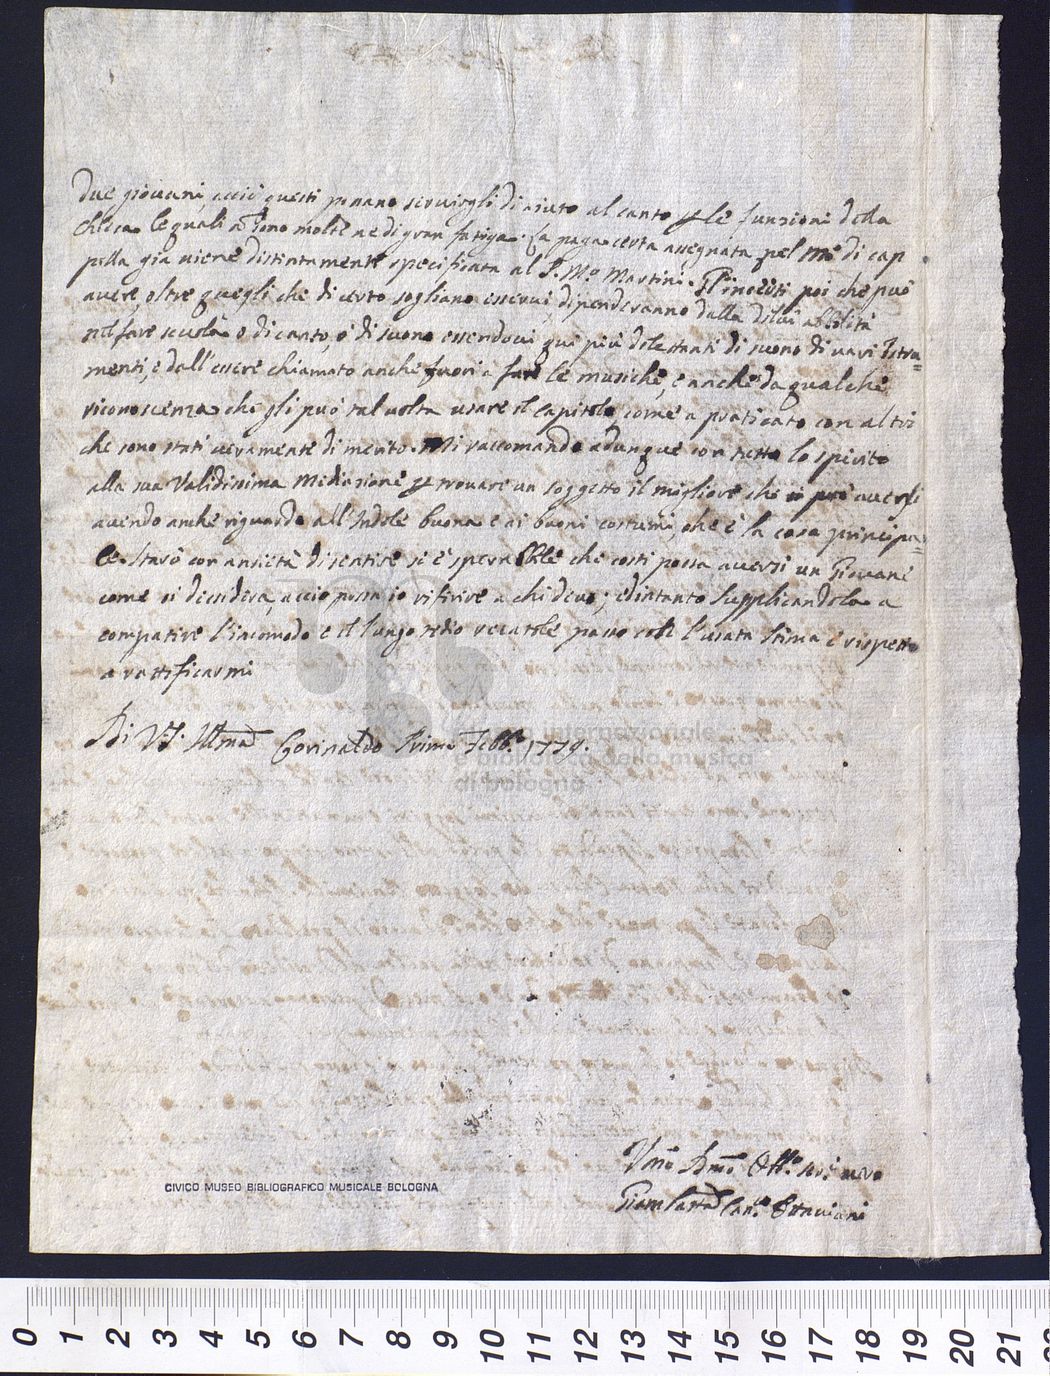 Due giovani, acciò questi possano servirgli di aiuto al canto p le funzioni della
chiesa le quali nō sono molte ne di gran fatiga. La paga certa assegnata pel Mrō di cap
pella già viene distintamente specificata al P. Mrō Martini. Gl'incerti poi che può
avere, oltre quegli che di certo sogliono esservi, dipenderanno dalla di lui abbilità
nel fare scuola o di canto, o di suono essendovi quì più diletanti di suono di varj Istru=
menti, e dall'essere chiamato anche fuori a fare le musiche, e anche da qualche
riconoscenza che gli può tal volta usare il Capitolo come a praticato con altri
che sono stati veramente di merito. Mi raccomando adunque con tutto lo spirito
alla sua Validissima Mediazione p trovare un soggetto il migliore che si può averssi
avendo anche riguardo all'Indole buona e ai buoni costumi, che è la cosa principa=
le. Starò con ansietà di sentire se è sperabbile che costì possa aversi un Giovane
come si desidera, acciò possa io riferire a chi devo; ed intanto supplicandola a
compatire l'incomodo e il lungo tedio recatole passo coll'usata stima e rispetto
a rattificarmi
Di V.S. Illmā Corinaldo Primo Febb.o 1779.
internazionale
e biblioteca della musica
di bologna
Umō Dmō Obb.mo ser.e vero
Giambattā Can.co Ottaviani
CIVICO MUSEO BIBLIOGRAFICO MUSICALE BOLOGNA
0 1 2 3 4 5 6 7 8 9 10 11 12 13 14 15 16 17 18 19 20 21 22